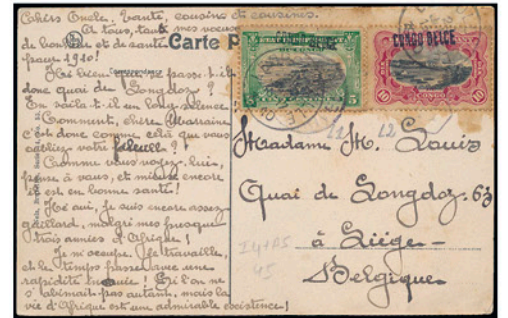 Chers Oncle, Tante, cousins et cousines.
À tous, tous mes voeux
de bonheur et de santé
pour 1910!
Carte P
Hé bien que se passe-t-il
donc quai de Longdoz?
En voilà-t-il un long silence
Comment, chère Marraine
c'est donc comme celà que vous
oubliez votre filleul?
Comme vous voyez, lui,
pense à vous, et mieux encore
il est en bonne santé!
Hé oui, je suis encore assez
gaillard, malgré mes presque
trois années d'Afrique!
Je m'occupe, je travaille,
et le temps passe avec une
rapidité inouïe! Si l'on ne
s'abimait pas autant, mais la
vie d'Afrique est une admirable existence!
CONGO BELGE
5
CINQ CENTIMES
5
CONGO BELGE
10
CONGO
10
12
12
Madame H. Louis
Quai de Longdoz 63
à Liège
Belgique